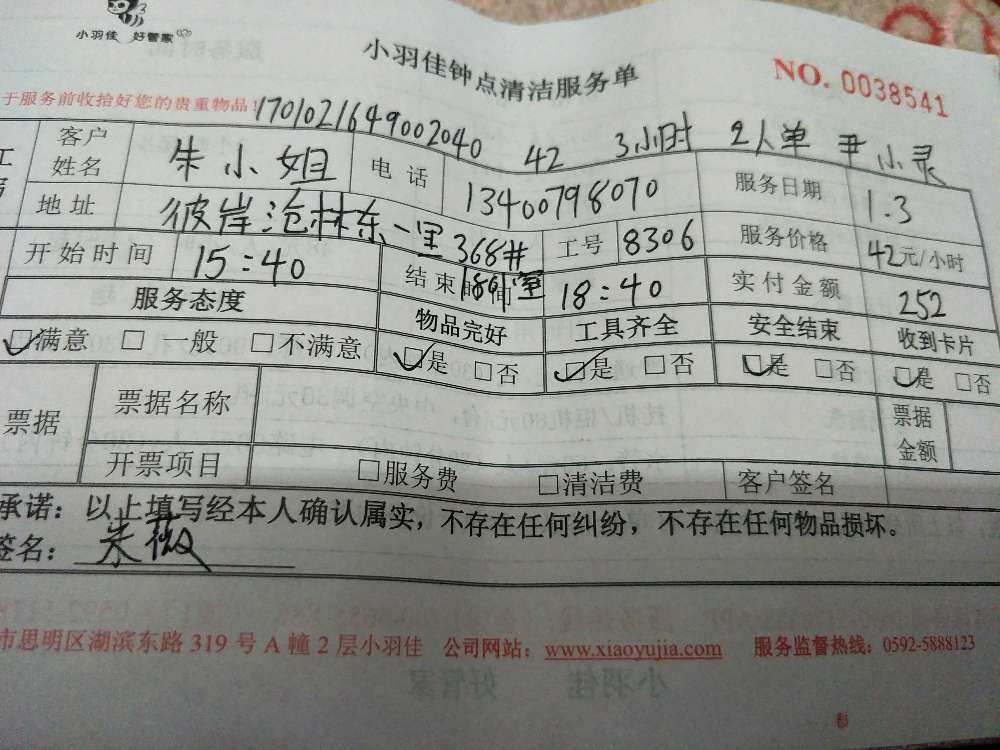 小羽佳 好管家
小羽佳钟点清洁服务单
NO. 0038541
于服务前收拾好您的贵重物品!
1701021649002040 42 3小时 2人单 尹小灵
客户姓名 朱小姐 电话 13400798070 服务日期 1.3
地址 彼岸沧林东一里368# 1801室 工号 8306 服务价格 42元/小时
开始时间 15:40 结束时间 18:40 实付金额 252
服务态度 物品完好 工具齐全 安全结束 收到卡片
☑满意 □一般 □不满意 ☑是 □否 ☑是 □否 ☑是 □否 ☑是 □否
票据 票据名称 票据金额
开票项目 □服务费 □清洁费 客户签名
承诺：以上填写经本人确认属实，不存在任何纠纷，不存在任何物品损坏。
签名： 朱薇
市思明区湖滨东路 319 号 A 幢 2 层小羽佳 公司网站：www.xiaoyujia.com 服务监督热线：0592-5888123